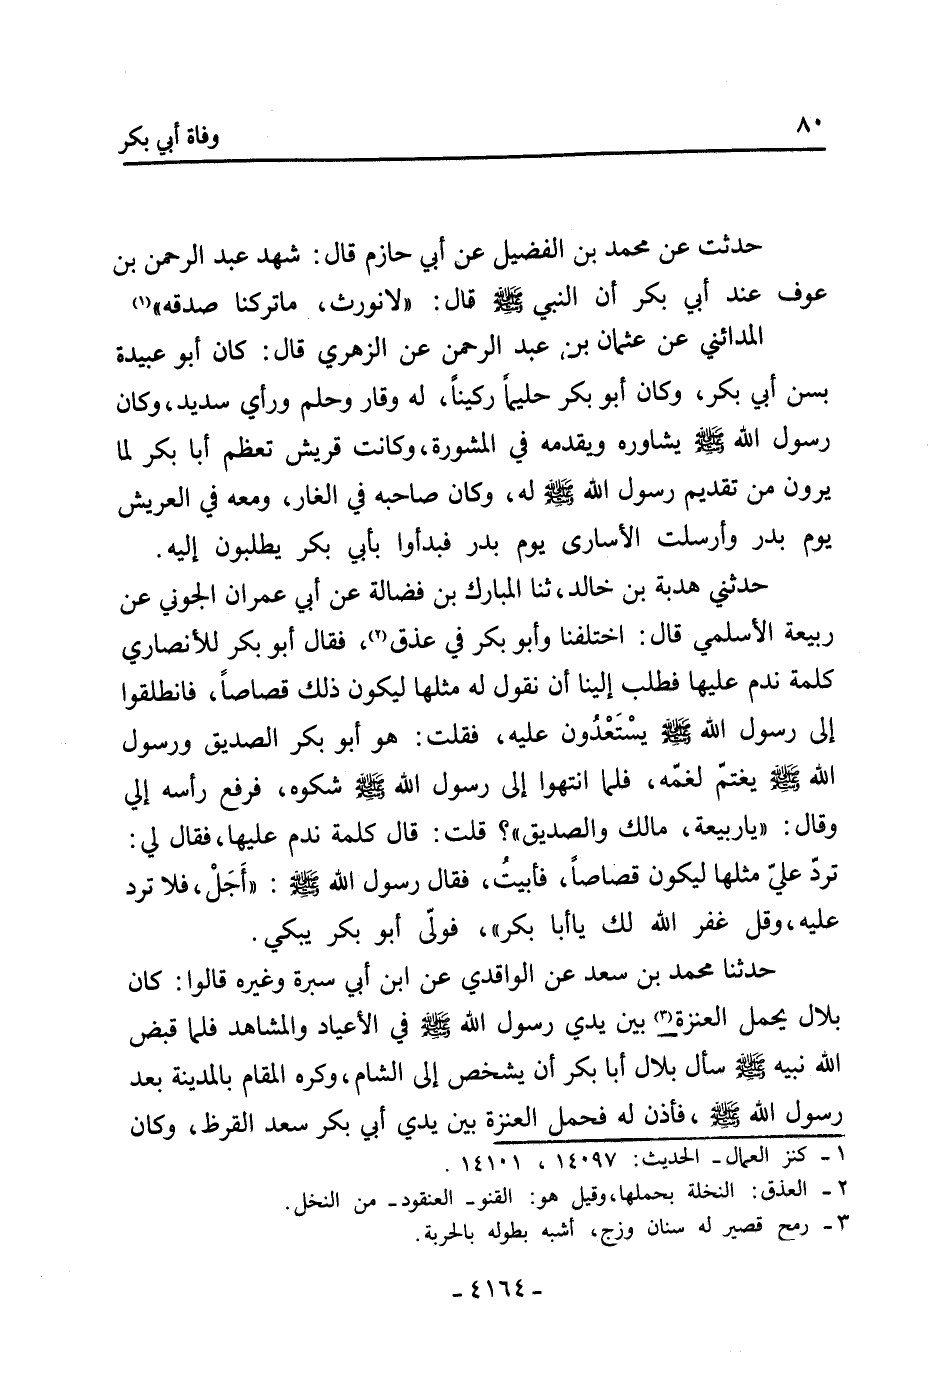 ٨٠
وفاة أبي بكر
حدثت عن محمد بن الفضيل عن أبي حازم قال: شهد عبد الرحمن بن
عوف عند أبي بكر أن النبي ﷺ قال: «لانورث، ماتركنا صدقه»(١)
المدائني عن عثمان بن عبد الرحمن عن الزهري قال: كان أبو عبيدة
بسن أبي بكر، وكان أبو بكر حليماً ركيناً، له وقار وحلم ورأي سديد، وكان
رسول الله ﷺ يشاوره ويقدمه في المشورة، وكانت قريش تعظم أبا بكر لما
يرون من تقديم رسول الله ﷺ له، وكان صاحبه في الغار، ومعه في العريش
يوم بدر وأرسلت الأسارى يوم بدر فبدأوا بأبي بكر يطلبون إليه.
حدثني هدبة بن خالد، ثنا المبارك بن فضالة عن أبي عمران الجوني عن
ربيعة الأسلمي قال: اختلفنا وأبو بكر في عذق(٢)، فقال أبو بكر للأنصاري
كلمة ندم عليها فطلب إلينا أن نقول له مثلها ليكون ذلك قصاصاً، فانطلقوا
إلى رسول الله ﷺ يسْتَعْدُون عليه، فقلت: هو أبو بكر الصديق ورسول
الله ﷺ يغتمّ لغمّه، فلما انتهوا إلى رسول الله ﷺ شكوه، فرفع رأسه إلي
وقال: «ياربيعة، مالك والصديق»؟ قلت: قال كلمة ندم عليها، فقال لي:
تردّ عليّ مثلها ليكون قصاصاً، فأبيتُ، فقال رسول الله ﷺ : «أَجَلْ، فلا ترد
عليه، وقل غفر الله لك ياأبا بكر»، فولّى أبو بكر يبكي.
حدثنا محمد بن سعد عن الواقدي عن ابن أبي سبرة وغيره قالوا: كان
بلال يحمل العنزة(٣) بين يدي رسول الله ﷺ في الأعياد والمشاهد فلما قبض
الله نبيه ﷺ سأل بلال أبا بكر أن يشخص إلى الشام، وكره المقام بالمدينة بعد
رسول الله ﷺ ، فأذن له فحمل العنزة بين يدي أبي بكر سعد القرظ، وكان
١ - كنز العمال - الحديث: ١٤٠٩٧ ، ١٤١٠١ .
٢ - العذق: النخلة بحملها، وقيل هو: القنو - العنقود - من النخل.
٣ - رمح قصير له سنان وزج، أشبه بطوله بالحربة.
- ٤١٦٤ -